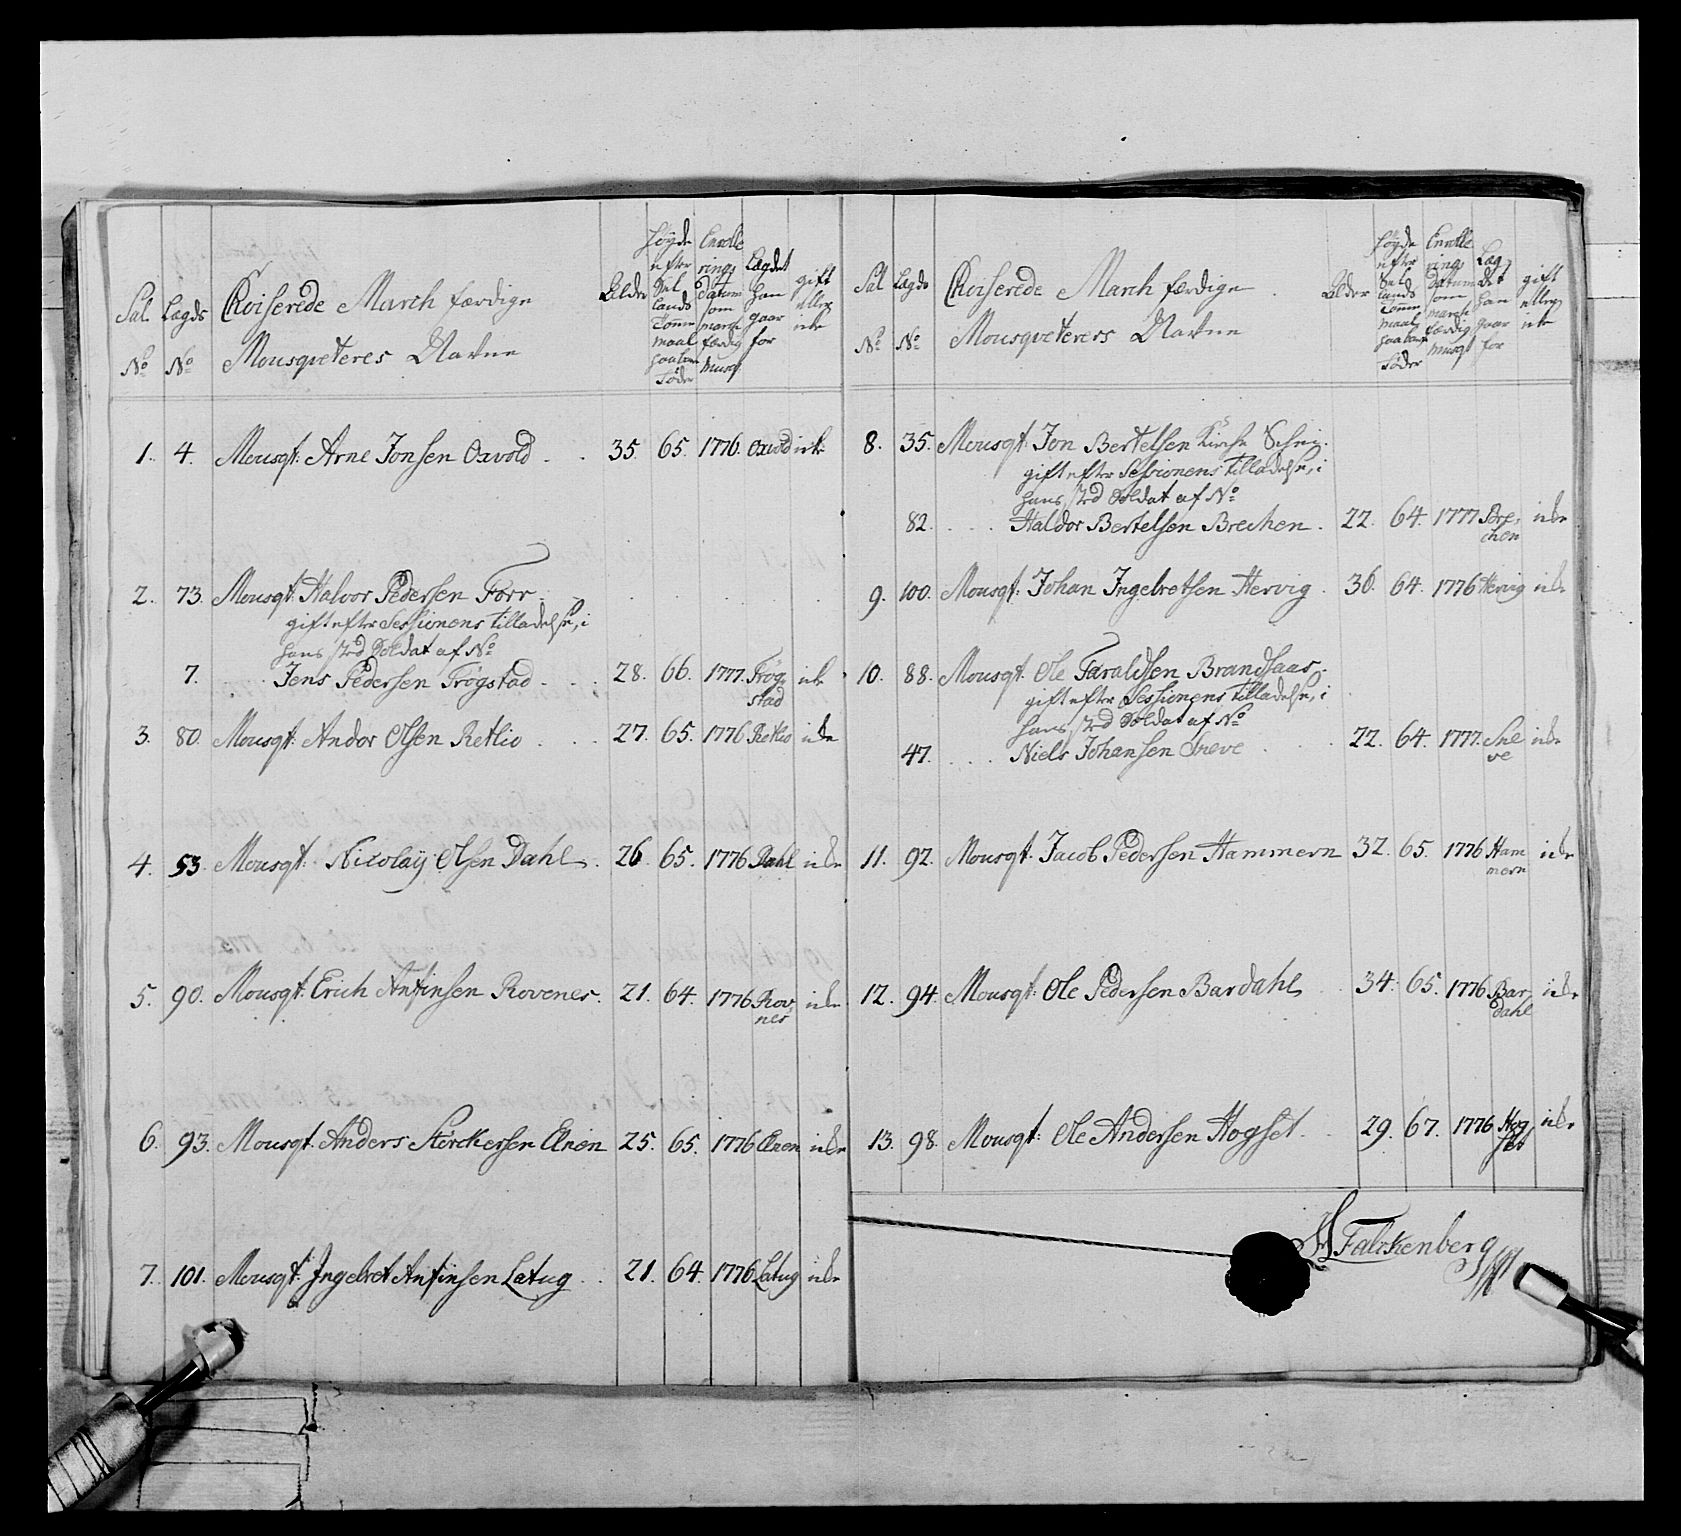 Sal. Lagds March færdige Alder
No No Mousqveteres Navne
Høyde efter Sel lands Tomme maal foruden Føder
Enrolle rings Datum som march færdig Musqt
Lægdet han gaar for
gift eller ikke
1. 4. Mousqt: Arne Jonsen Oxvold . . 35. 65. 1776. Oxvold ikke
2. 73. Mousqt: Halvor Pedersen Forr
gift efter Sessionens Tilladelse, i
hans sted Soldat af No
7. Jens Pedersen Frøgstad . . . 28. 66. 1777. Frøg-
stad ikke
3. 80. Mousqt: Andor Olsen Retlio . . . 27. 65. 1776 Retlio ikke
4. 53. Mousqt: Nicolaÿ Olsen Dahl . 26. 65. 1776 Dahl ikke
5. 90. Mousqt: Erich Antinsen Rovenes . 21. 64. 1776 Rov
nes ikke
6. 93. Mousqt. Anders Storckersen Elnen 25. 65. 1776 Elnen ikke
7. 101. Mousqt: Ingebret Antinsen Latug . . 21. 64. 1776. Latug ikke
Sal Lagds March færdige Alder
No No Mousqveterers Navne
Høyde efter Sel lands Tomme maal foruden Føder
Enrolle rings Datum som march færdig musqt
Læg det han gaar for
gift eller ikke
8. 35. Mousqt: Jon Bertelsen
gift efter Sessionens Tilladelse, i
hans sted Soldat af No
82. . . . Haldor Bertelsen Brechen . 22. 64. 1777 Bre-
chen ikke
9. 100. Mousqt: Johan Ingebretsen Hervig . 36. 64. 1776 Hervig ikke
10. 88. Mousqt. Ole Taraldsen Brandsaas.
gift efter Sessionens Tilladelse, i
hans sted Soldat af No
47. . . . Niels Johansen Sneve . . 22. 64. 1777. Sne
ve ikke
11. 92. Mousqt. Jacob Pedersen Hammern 32. 65. 1776 Ham
mern ikke
12. 94. Mousqt: Ole Pedersen Bardahl 34. 65. 1776 Bar-
dahl ikke
13. 98. Mousqt: Ole Andersen Hogset . 29. 67. 1776 Hog
set ikke
Falckenberg